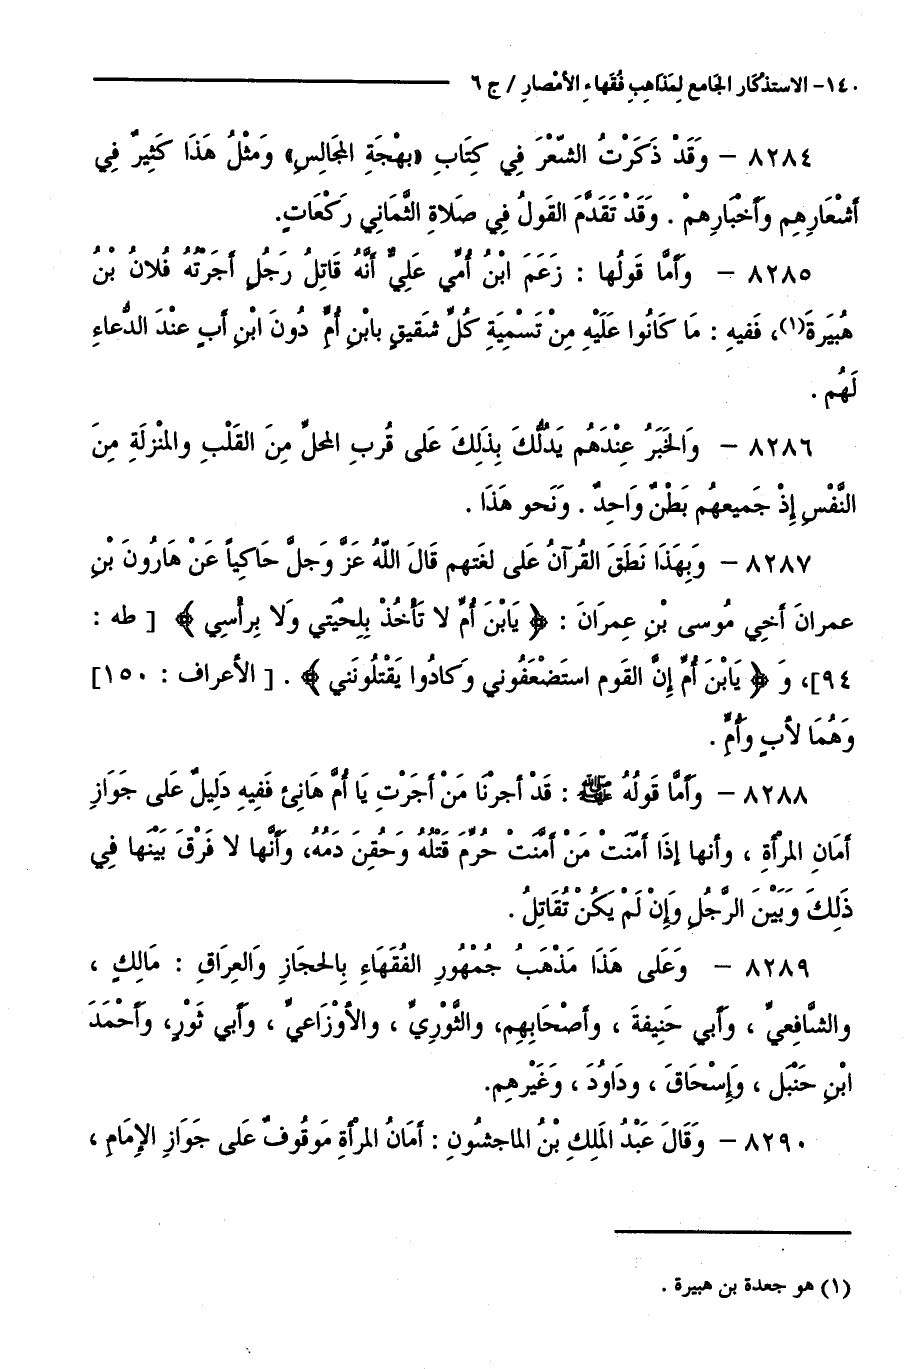 ١٤٠- الاستذكار الجامع لمذاهب فقهاء الأمصار / ج ٦
٨٢٨٤ - وَقَدْ ذَكَرْتُ الشّعْرَ فِي كِتَابِ «بهْجَةِ المجَالِسِ» وَمثْلُ هَذَا كَثِيرٌ فِي
أشْعَارِهِم وَأخْبَارِهمْ . وَقَدْ تَقَدَّمَ القَولُ فِي صَلاةِ الثَّمَانِي رَكْعَاتٍ.
٨٢٨٥ - وَأمَّا قَولُها : زَعَمَ ابْنُ أُمِّي عَلِيٌّ أنَّهُ قَاتِلُ رَجُلٍ أجَرْتُهُ فُلانُ بْنُ
هُبَيرَةَ(١)، فَفيهِ : مَا كَانُوا عَلَيْهِ مِنْ تَسْمِيَةِ كُلِّ شَقيقٍ بابْنِ أُمٍّ دُونَ ابْنِ أبٍ عنْدَ الدُّعاءِ
لَهُم .
٨٢٨٦ - وَالخَبَرُ عِنْدَهُم يَدُلُّكَ بِذَلِكَ عَلى قُربِ المحلِّ مِنَ القَلْبِ والمنْزِلَةِ مِنَ
النَّفْسِ إِذْ جَميعهُم بَطْنٌ وَاحِدٌ . وَنَحو هَذَا .
٨٢٨٧ - وَبِهَذَا نَطَقَ القُرآنُ عَلى لغَتهم قَالَ اللَّهُ عَزَّ وَجلَّ حَاكِياً عَنْ هَارُونَ بْنِ
عمرانَ أخِي مُوسى بْنِ عِمرَانَ : ﴿ يَابْنَ أمَّ لا تَأخُذْ بِلِحْيَتي وَلا بِرأسِي ﴾ [ طه :
٩٤]، وَ ﴿ يَابْنَ أُمَّ إِنَّ القَوم استَضْعَفُوني وَكَادُوا يَقْتُلُونَني ﴾ . [ الأعراف : ١٥٠]
وَهُمَا لأبٍ وَأُمٍّ .
٨٢٨٨ - وَأمَّا قَولُهُ ﷺ : قَدْ أجرْنَا مَنْ أجَرْتِ يَا أُمَّ هَانِئ فَفِيهِ دَلِيلٌ عَلى جَوَازِ
أمَانِ المرْأةِ ، وأنها إِذَا أمَّنَتْ مَنْ أمَّنَتْ حُرِّمَ قَتْلُهُ وَحُقِنَ دَمُهُ، وَأنَّها لا فَرْقَ بَيْنَها فِي
ذَلِكَ وَبَيْنَ الرَّجُلِ وَإِنْ لَمْ يَكُنْ تُقَاتِلُ .
٨٢٨٩ - وَعَلى هَذَا مَذْهَبُ جُمْهُورِ الفُقَهَاءِ بِالحجَازِ وَالعِرَاقِ : مَالِكٍ ،
والشَّافِعيِّ ، وَأبي حَنِيفةَ ، وأصْحَابِهِم، والثَّوْرِيِّ ، والأوْزَاعيِّ ، وَأبي ثَوْرٍ، وَأحْمَدَ
ابْنِ حَنْبَلٍ ، وَإِسْحَاقَ ، ودَاوُدَ ، وَغَيْرهِم.
٨٢٩٠ - وَقَالَ عَبْدُ المَلِكِ بْنُ الماجشُونِ : أمَانُ المرْأةِ مَوقُوفٌ عَلى جَوَازِ الإمَامِ ،
(١) هو جعدة بن هبيرة .